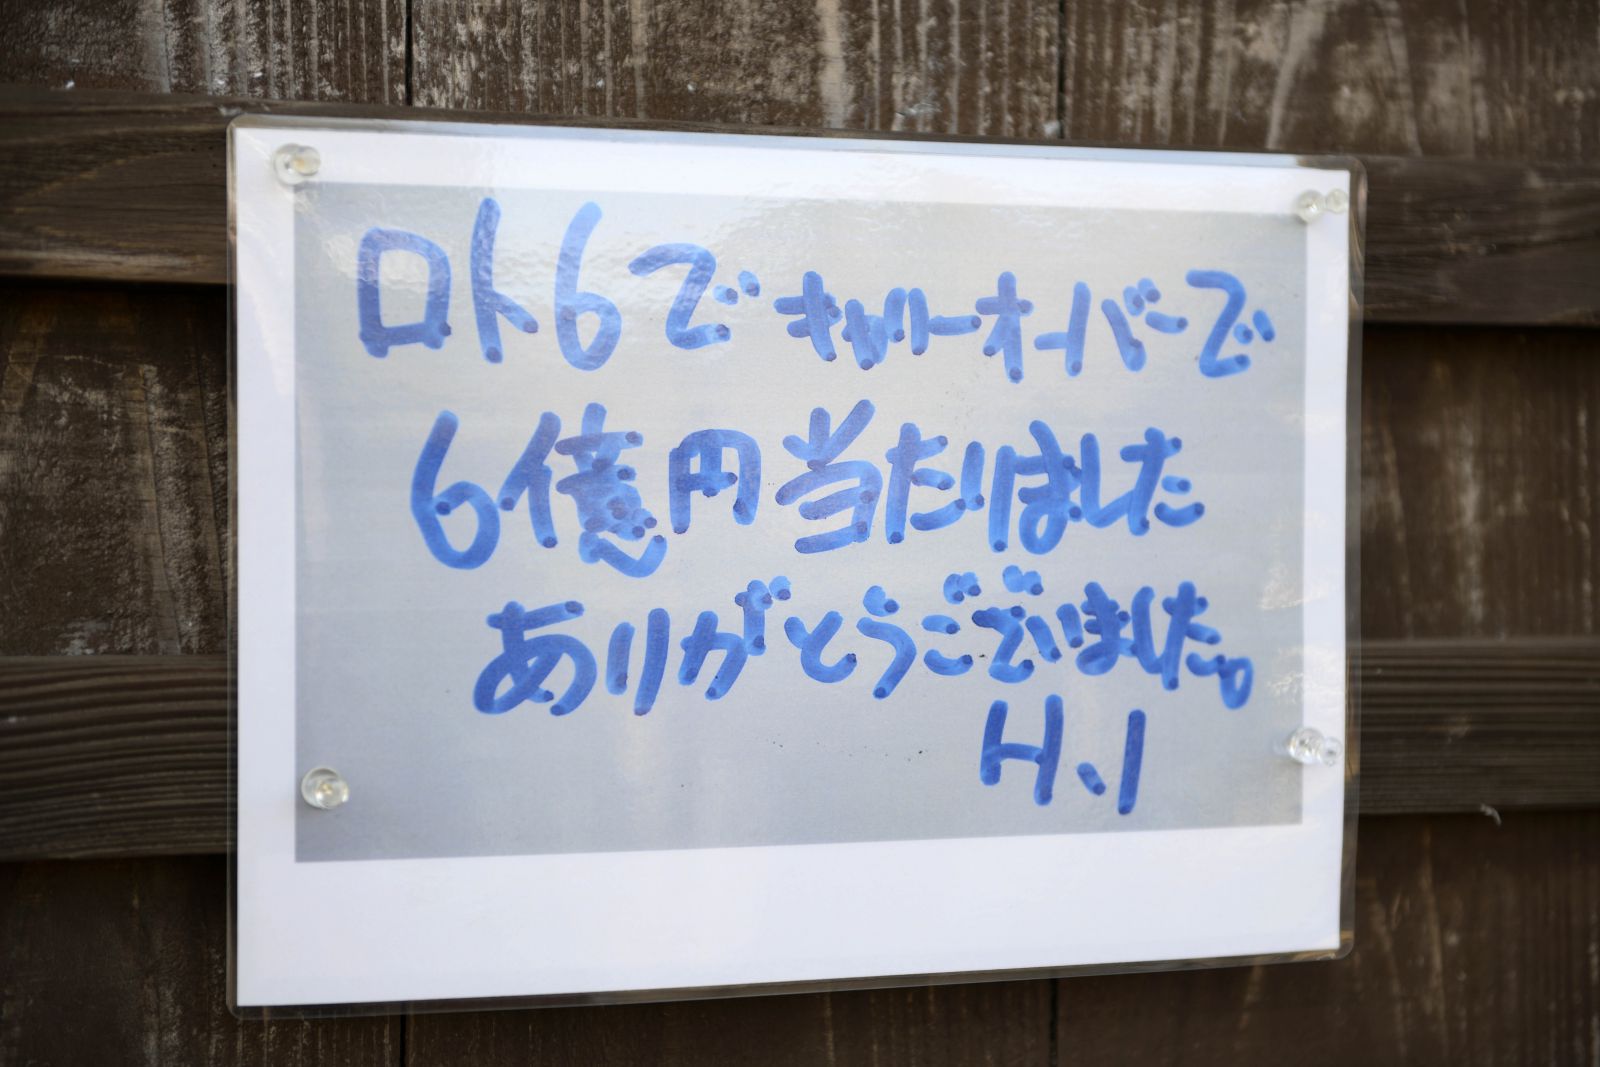 ロト6でキャリーオーバーで
6億円当たりました
ありがとうございました。
H、I